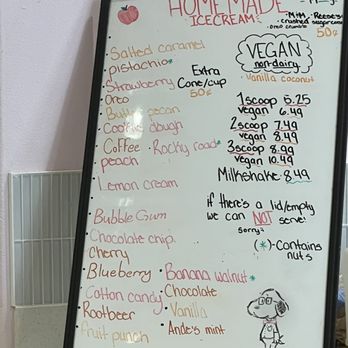 HOMEMADE
ICECREAM
· M&M · Reese's
· crushed sugar cone
· oreo crumble
50¢
· Salted caramel
· pistachio*
· Strawberry
· Oreo
· Butter pecan
· Cookie dough
· Coffee · Rocky road*
· peach
· Lemon cream
· Bubble Gum
· Chocolate chip
· Cherry
· Blueberry · Banana walnut*
· Cotton candy · Chocolate
· Rootbeer · Vanilla
· fruit punch · Ande's mint
Extra
Cone/cup
50¢
VEGAN
non-dairy
· Vanilla coconut
1scoop 5.25
vegan 6.49
2scoop 7.49
vegan 8.49
3scoop 8.99
vegan 10.49
Milkshake 8.49
if there's a lid/empty
we can NOT serve!
sorry
(*)-contains
nuts